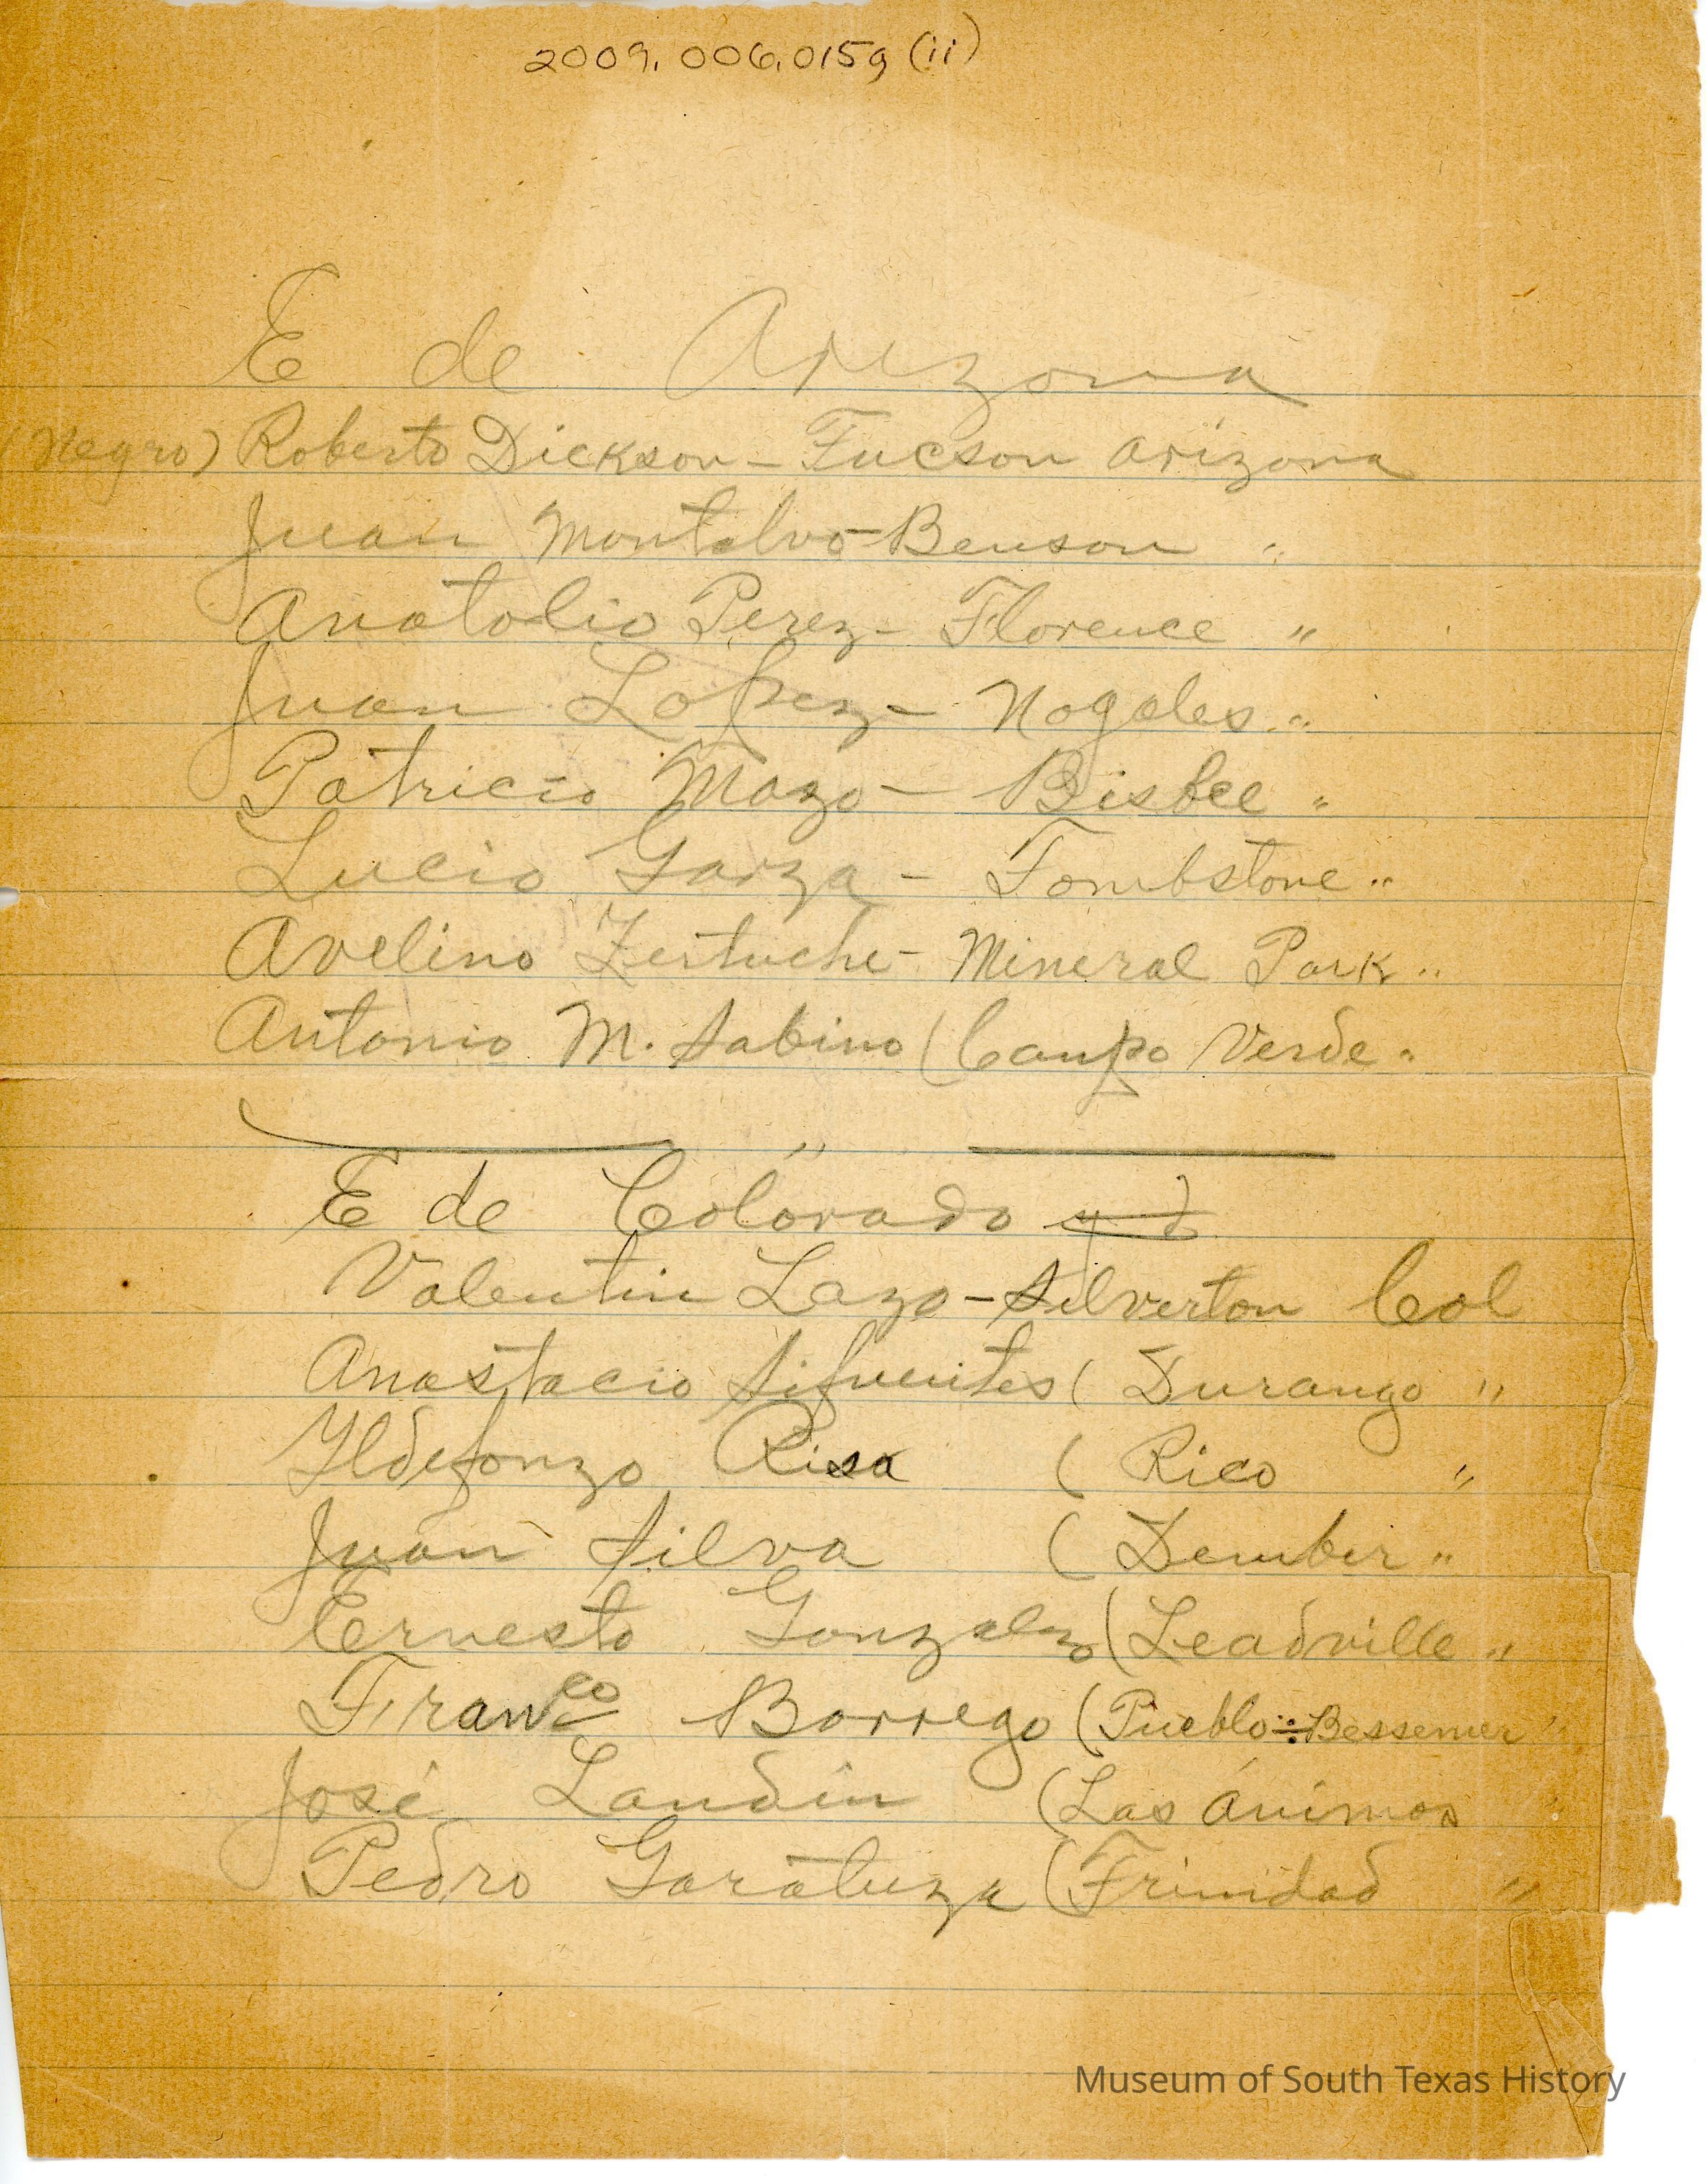 2009.006.015g (ii)
E de Arizona
(Negro) Roberto Dickson - Tucson Arizona
Juan Montalvo - Benson "
Anatolio Perez - Florence "
Juan Lopez - Nogales "
Patricio Mazo - Bisbee "
Lucio Garza - Tombstone "
Avelino Zertuche - Mineral Park "
Antonio M. Sabino ( Campo Verde "
"
E de Colorado
Valentin Lazo - Silverton Col
Anastacio Sifuentes ( Durango "
Yldefonzo Risa ( Rico "
Juan Silva ( Dember "
Ernesto Gonzalez ( Leadville "
Franco Borrego ( Pueblo Bessemer "
José Landin ( Las Ánimas "
Pedro Garatuza ( Trinidad "
Museum of South Texas History